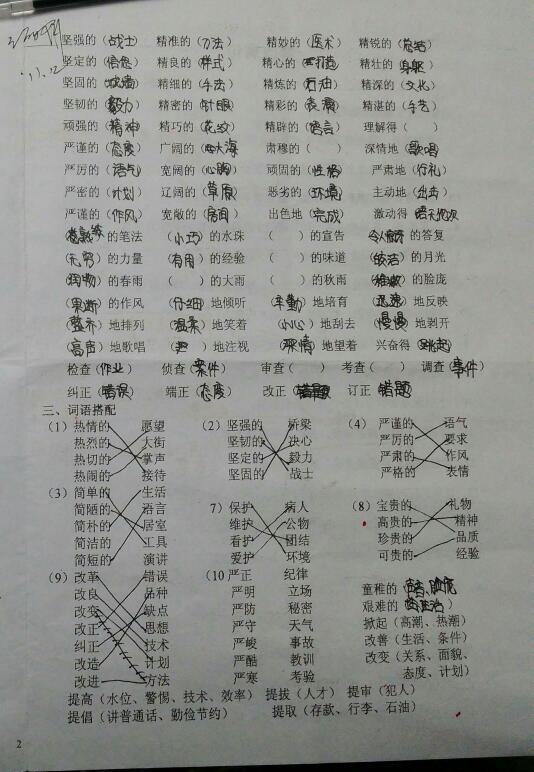 11.12
坚强的（战士） 精准的（方法） 精妙的（医术） 精锐的（总结）
坚定的（信念） 精良的（样式） 精心的（打造） 精壮的（身躯）
坚固的（城墙） 精细的（手法） 精炼的（石油） 精深的（文化）
坚韧的（毅力） 精密的（针眼） 精彩的（表演） 精湛的（手艺）
顽强的（精神） 精巧的（花纹） 精辟的（语言） 理解得（ ）
严谨的（态度） 广阔的（大海） 肃穆的（ ） 深情地（歌唱）
严厉的（语气） 宽阔的（心胸） 顽固的（性格） 严肃地（行礼）
严密的（计划） 辽阔的（草原） 恶劣的（环境） 主动地（出击）
严谨的（作风） 宽敞的（房间） 出色地（完成） 激动得（语无伦次）
（熟练）的笔法 （小巧）的水珠 （ ）的宣告 （令人满意）的答复
（无穷）的力量 （有用）的经验 （ ）的味道 （皎洁）的月光
（润物）的春雨 （ ）的大雨 （ ）的秋雨 （稚嫩）的脸庞
（果断）的作风 （仔细）地倾听 （辛勤）地培育 （迅速）地反映
（整齐）地排列 （温柔）地笑着 （小心）地刮去 （慢慢）地剥开
（高声）地歌唱 （ ）地注视 （深情）地望着 兴奋得（跳起）
检查（作业） 侦查（案件） 审查（ ） 考查（ ） 调查（事件）
纠正（错误） 端正（态度） 改正（错题） 订正（错题）
三、词语搭配
（1）热情的 愿望 （2）坚强的 桥梁 （4）严谨的 语气
热烈的 大街 坚韧的 决心 严厉的 要求
热切的 掌声 坚定的 毅力 严肃的 作风
热闹的 接待 坚固的 战士 严格的 表情
（3）简单的 生活
简陋的 语言 7）保护 病人 （8）宝贵的 礼物
简朴的 居室 维护 公物 高贵的 精神
简洁的 工具 看护 团结 珍贵的 品质
简短的 演讲 爱护 环境 可贵的 经验
（9）改革 错误 （10 严正 纪律
改良 品种 严明 立场 童稚的（
改变 缺点 严防 秘密 艰难的（
改正 思想 严守 天气 掀起（高潮、热潮）
纠正 技术 严峻 事故 改善（生活、条件）
改造 计划 严酷 教训 改变（关系、面貌、
改进 方法 严寒 考验 态度、计划）
提高（水位、警惕、技术、效率） 提拔（人才） 提审（犯人）
提倡（讲普通话、勤俭节约） 提取（存款、行李、石油）
2